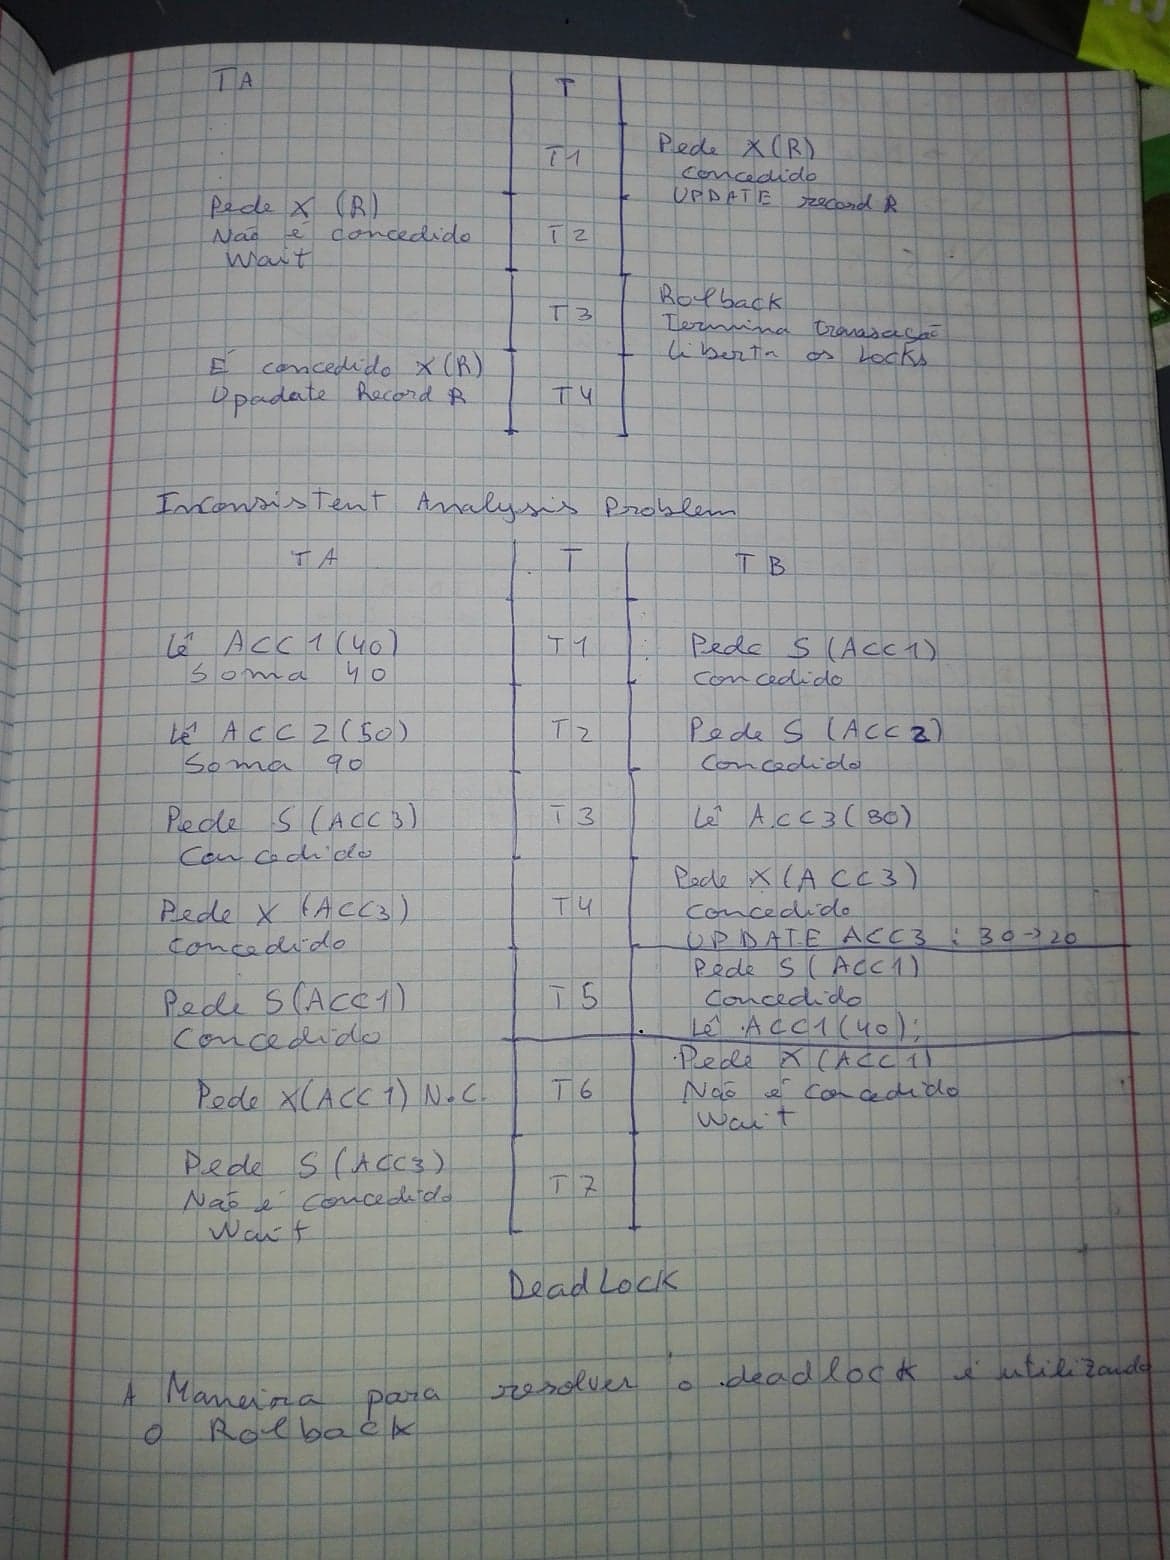 TA T
T1 Pede X(R)
concedido
UPDATE record R
Pede X (R)
Não é concedido T2
Wait
Rolback
T3 Termina transação
liberta os Locks
É concedido X(R)
Upadate Record R T4
Inconsistent Analysis Problem
TA T TB
Lê ACC1(40) T1 Pede S(ACC1)
Soma 40 concedido
Lê ACC2(50) T2 Pede S(ACC2)
Soma 90 concedido
Pede S(ACC3) T3 Lê ACC3(30)
Concedido
Pede X(ACC3)
Pede X(ACC3) T4 concedido
concedido UPDATE ACC3 : 30→20
Pede S(ACC1)
Pede S(ACC1) T5 concedido
Concedido Lê ACC1(40);
Pede X(ACC1)
Pede X(ACC1) N.C. T6 Não é concedido
Wait
Pede S(ACC3)
Não é concedido T7
Wait
DeadLock
A Maneira para resolver o deadlock é utilizando
o Rolback